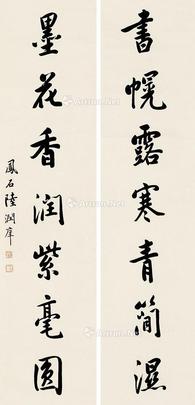 書幌露寒青簡濕
墨花香潤紫毫圓
鳳石陸潤庠